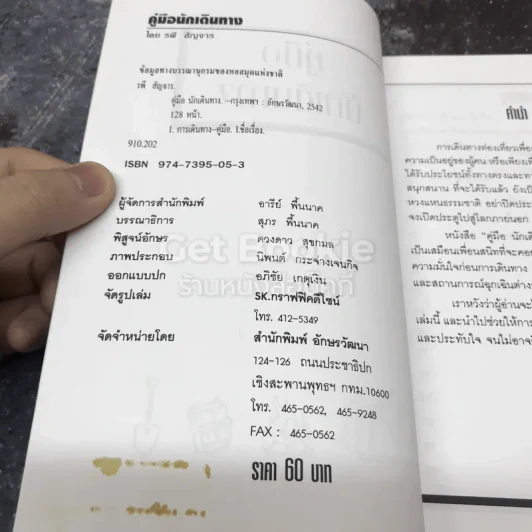 คู่มือนักเดินทาง
โดย รพี สัญจาร
ข้อมูลทางบรรณานุกรมของหอสมุดแห่งชาติ
รพี สัญจาร.
คู่มือ นักเดินทาง. -กรุงเทพฯ : อักษรวัฒนา, 2542
128 หน้า.
1. การเดินทาง-คู่มือ. I.ชื่อเรื่อง.
910.202
ISBN 974-7395-05-3
ผู้จัดการสำนักพิมพ์ อารีย์ พื้นนาค
บรรณาธิการ สุภร พื้นนาค
พิสูจน์อักษร ดวงดาว สุขกมล
ภาพประกอบ นิพนธ์ กระจ่างเจนกิจ
ออกแบบปก อภิชัย เกตุเงิน
จัดรูปเล่ม SK.กราฟฟิคดีไซน์
โทร. 412-5349
จัดจำหน่ายโดย สำนักพิมพ์ อักษรวัฒนา
124-126 ถนนประชาธิปก
เชิงสะพานพุทธฯ กทม.10600
โทร. 465-0562, 465-9248
FAX : 465-0562
ราคา 60 บาท
Get Bookie
ร้านหนังสือเก่ากี้
คำนำ
การเดินทางท่องเที่ยวเพื่อ
ความเป็นอยู่ของผู้คน หรือเพียงเพื่อ
ได้รับประโยชน์ทั้งทางตรงและทา
สนุกสนาน ที่จะได้รับแล้ว ยังเป็
หวงแหนธรรมชาติ อย่าปิดประ
จงเปิดประตูไปสู่โลกภายนอก
หนังสือ "คู่มือ นักเดิ
เป็นเสมือนเพื่อนสนิทที่จะคอย
ความมั่นใจก่อนการเดินทาง
และสถานการณ์ฉุกเฉินต่าง
เราหวังว่าผู้อ่านจะ
เล่มนี้ และนำไปช่วยให้การ
และประทับใจ จนไม่อาจ